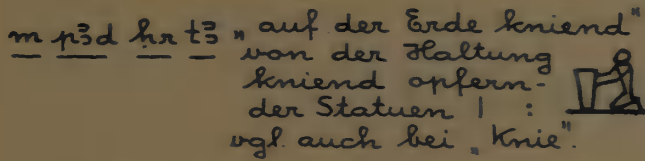 m pꜣd ḥr tꜣ „auf der Erde kniend"
von der Haltung
kniend opfern-
der Statuen | :
vgl. auch bei „Knie".